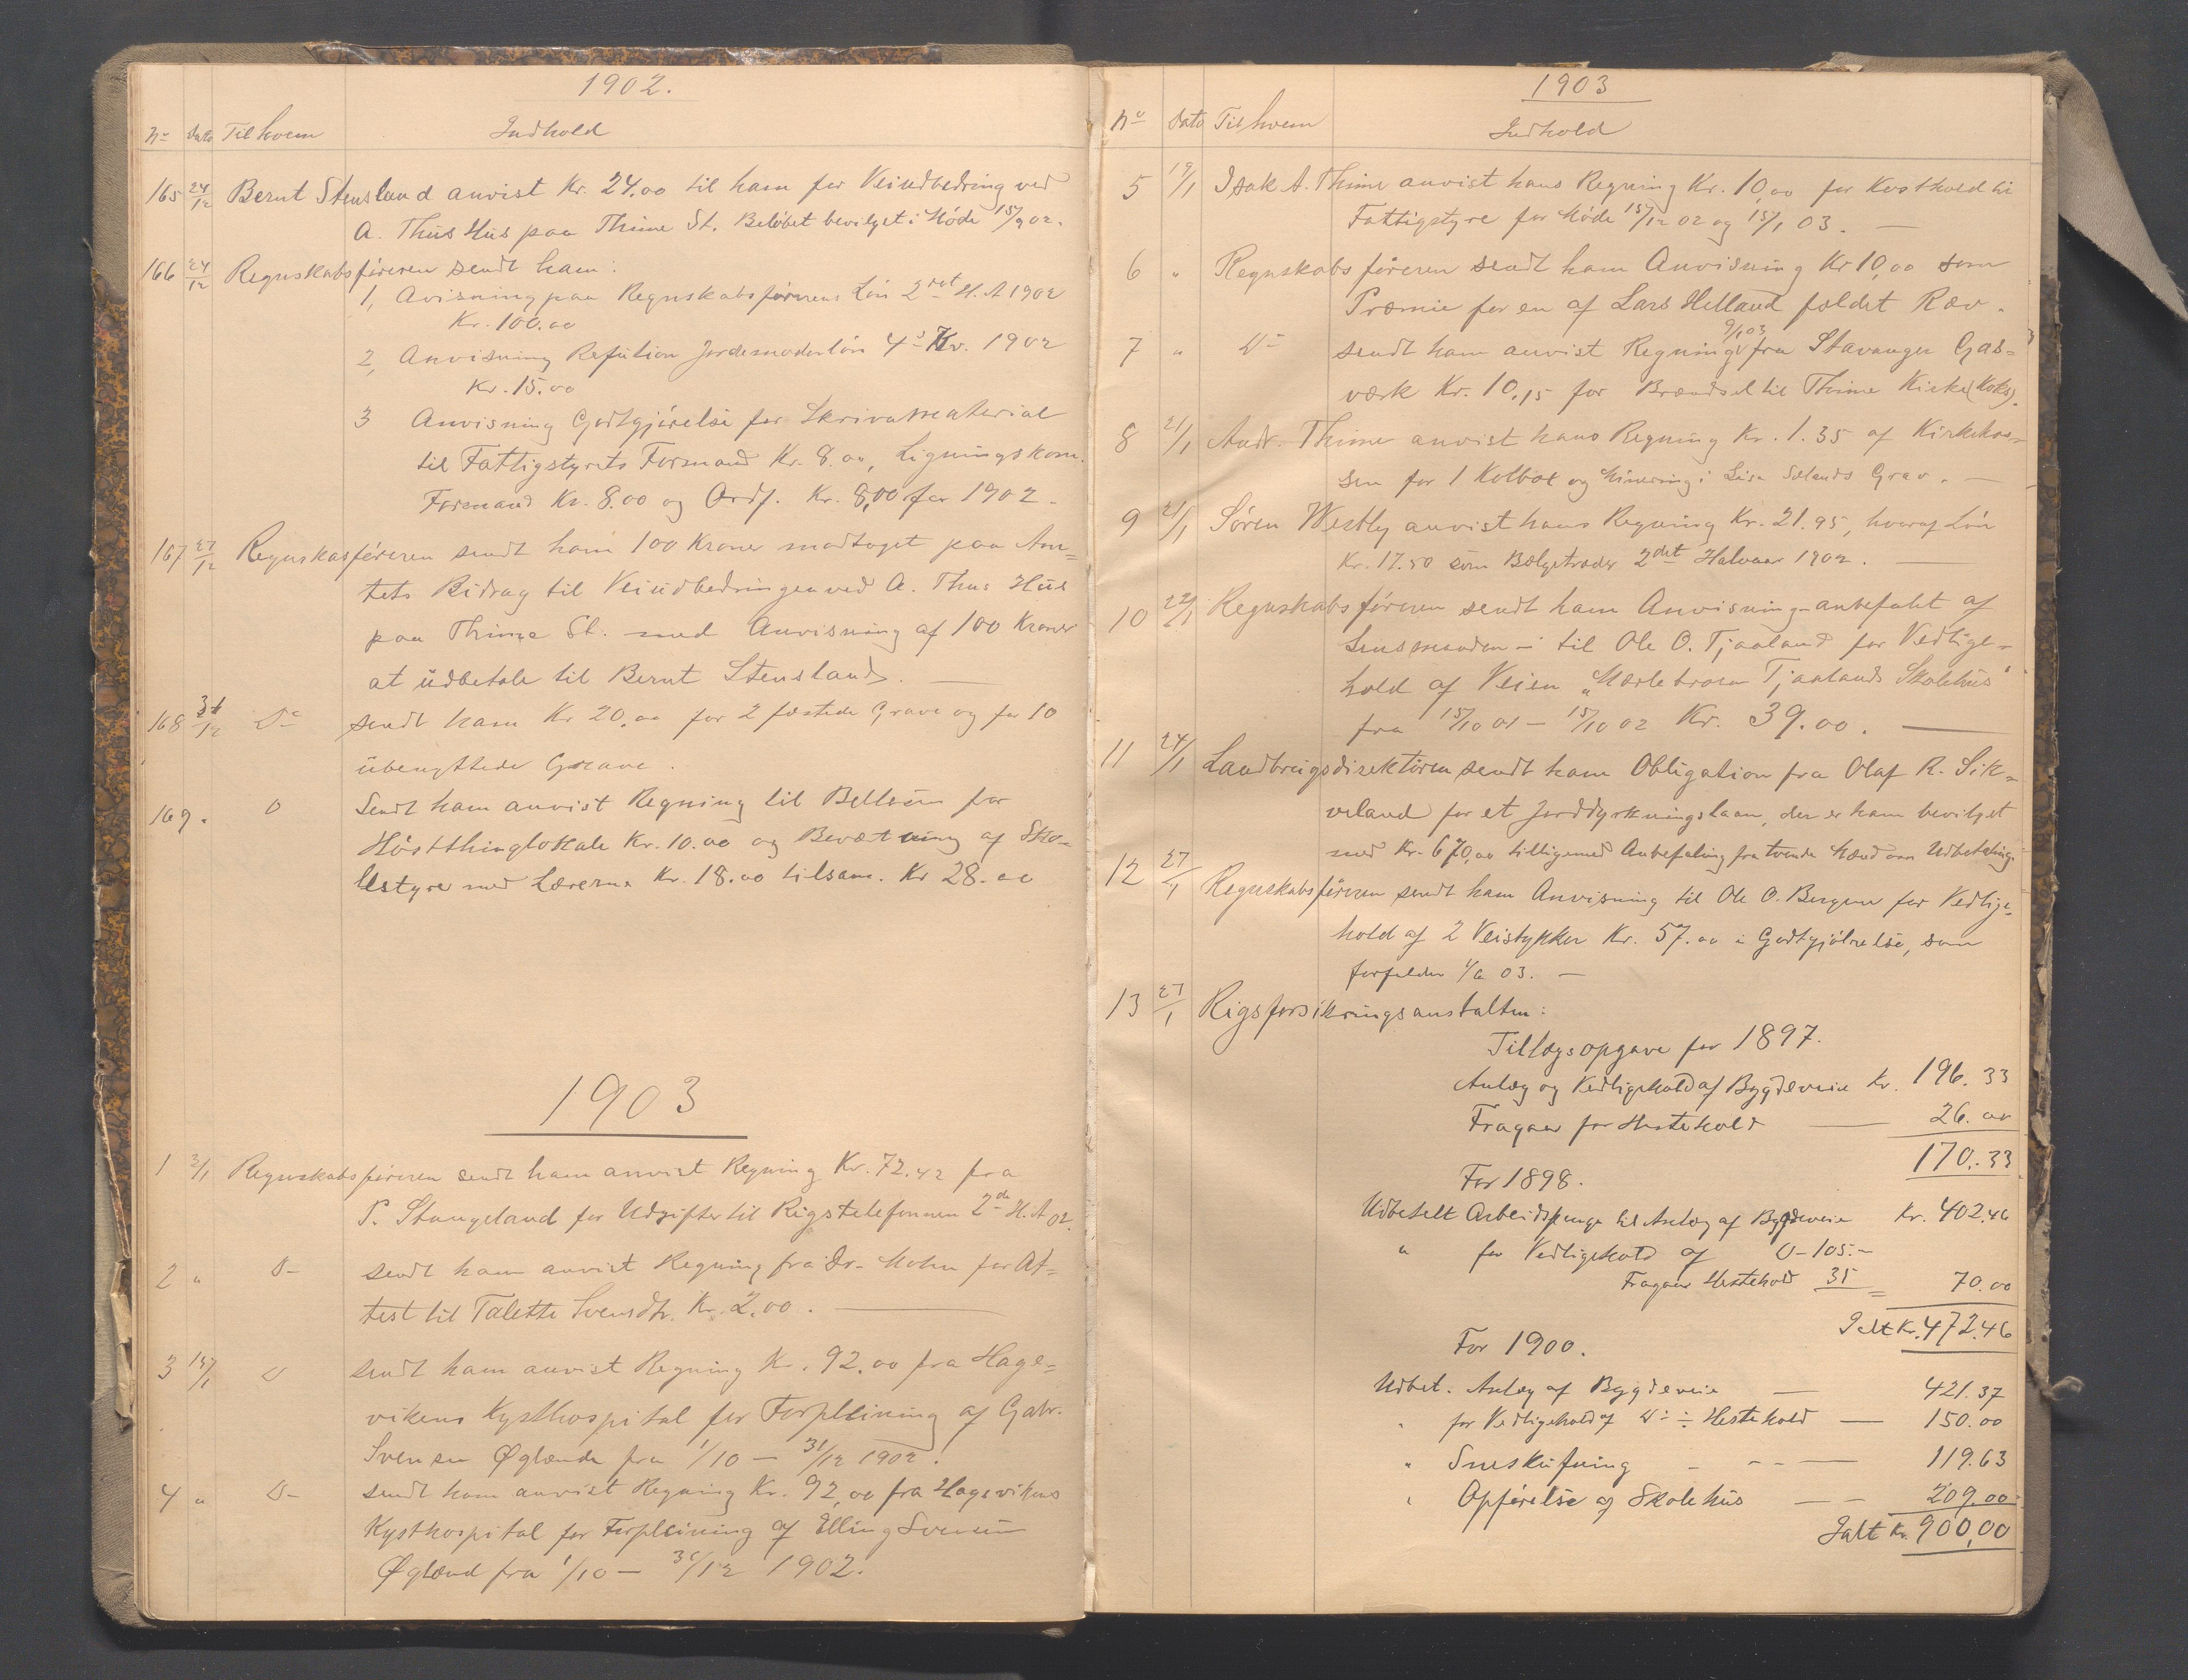 1902.
No Dato Til hvem Indhold
165 24/12 Bernt Stensland anvist Kr. 24.00 til ham for Veiudbedring ved
A. Thus Hus paa Thime St. Beløbet bevilget i Møde 15/9 02.
166 24/12 Regnskabsføreren sendt ham:
1, Avisning paa Regnskabsførerens Løn 2det H.A 1902
Kr. 100.00
2, Anvisning Refution Jordemoderløn 4de Kv. 1902
Kr. 15.00
3 Anvisning Godtgjørelse for Skrivematerial
til Fattigstyrets Formand Kr. 8.00, Ligningskom.
Formand Kr. 8.00 og Ordf. Kr. 8,00 for 1902.
167 27/12 Regnskasføreren sendt ham 100 Kroner modtaget paa Am=
tets Bidrag til Veiudbedringen ved A. Thus Hus
paa Thime St. med Anvisning af 100 Kroner
at udbetale til Bernt Stensland. —
168 31/12 Do sendt ham Kr 20.00 for 2 fæstede Grave og for 10
ubenyttede Grave.
169. D Sendt ham anvist Regning til Bellesen for
Høstthinglokale Kr. 10.00 og Beværtning af Sko=
lestyre med Lærerne Kr. 18.00 tilsam. Kr 28.00
1903
1 3/1 Regnskabsføreren sendt ham anvist Regning Kr. 72.42 fra
P. Stangeland for Udgifter til Rigstelefonnen 2de H.A 02.
2 " D- sendt ham anvist Regning fra Dr. Mohn for At=
test til Talette Svensdtr. Kr. 2.00. —
3 15/1 D sendt ham anvist Regning Kr. 92.00 fra Hage=
vikens Kysthospital for Forpleining af Gabr.
Svensen Øglænde fra 1/10 — 31/12 1902.
4 " D- sendt ham anvist Regning Kr. 92,00 fra Hagevikens
Kysthospital for Forpleining af Elling Svensen
Øglænd fra 1/10 — 31/12 1902.
1903
No Dato Til hvem Indhold
5 19/1 Isak A. Thime anvist hans Regning Kr. 10,00 for Kosthold til
Fattigstyre for Møde 15/12 02 og 15/1 03. —
6 " Regnskabsføreren sendt ham Anvisning Kr 10,00 som
Præmie for en af Lars Helland fældet Ræv.
7 " Do sendt ham anvist Regning 9/1 03 fra Stavanger Gas=
værk Kr. 10,15 for Brændsel til Thime Kirke (Koks).
8 21/1 Andr. Thime anvist hans Regning Kr. 1.35 af Kirkekas=
sen for 1 Kolbøt og Minering i Lisa Sælands Grav. —
9 21/1 Søren Westby anvist hans Regning Kr. 21.95, hvoraf Løn
Kr. 17.50 som Bælgetræder 2det Halvaar 1902. —
10 22/1 Regnskabsføreren sendt ham Anvisning - anbefalt af
Lensmanden - til Ole O. Tjaaland for Vedlige=
hold af Veien „Mærlebroen Tjaalands Skolehus"
fra 15/10 01 — 15/10 02 Kr. 39.00. —
11 24/1 Landbrugsdirektøren sendt ham Obligation fra Olaf R. Sik=
veland for et Jorddyrkningslaan, der er ham bevilget
med Kr. 670,00 tilligemed Anbefaling fra tvende Mænd om Udbetaling.
12 27/1 Regnskabsføreren sendt ham Anvisning til Ole O. Bergene for Vedlige=
hold af 2 Veistykker Kr. 57.00 i Godtgjølrelse, som
forfalder 1/2 03. —
13 27/1 Rigsforsikringsanstalten:
Tillægsopgave for 1897.
Anlæg og Vedligehold af Bygdeveie Kr. 196.33
Fragaar for Hestehold — 26.00
170.33
For 1898.
Udbetalt Arbeidspenge til Anlæg af Bygdeveie Kr. 402.46
" for Vedligehold af D- 105.-
Fragaar Hestehold 35 = 70.00
Ialt Kr. 472.46
For 1900.
Udbet. Anlæg af Bygdeveie — 421.37
" for Vedligehold af Do ÷ Hestehold — 150.00
" Sneskufning - - - — 119.63
" Opførelse af Skolehus — — 209.00
Ialt Kr. 900,00